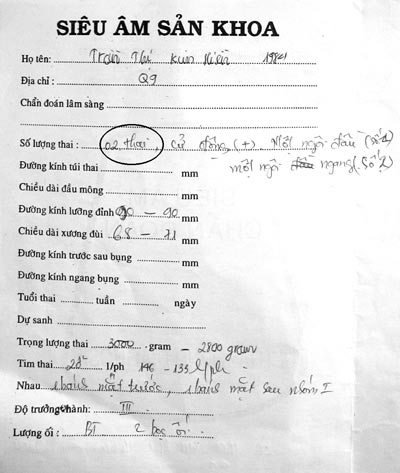 SIÊU ÂM SẢN KHOA
Họ tên: Trần Thị Kim Hiền 1984
Địa chỉ: Q9
Chẩn đoán lâm sàng
Số lượng thai: 02 thai, cử động (+) Một ngôi đầu (số 1)
một ngôi ngang (số 2)
Đường kính túi thai mm
Chiều dài đầu mông mm
Đường kính lưỡng đỉnh 90 – 90 mm
Chiều dài xương đùi 68 – 71 mm
Đường kính trước sau bụng mm
Đường kính ngang bụng mm
Tuổi thai tuần ngày
Dự sanh
Trọng lượng thai 3000 gram – 2800 gram
Tim thai 2đ l/ph 146 – 133 l/ph
Nhau 1 bám mặt trước, 1 bám mặt sau nhóm I
Độ trưởng thành: III
Lượng ối: BT 2 bọc ối.